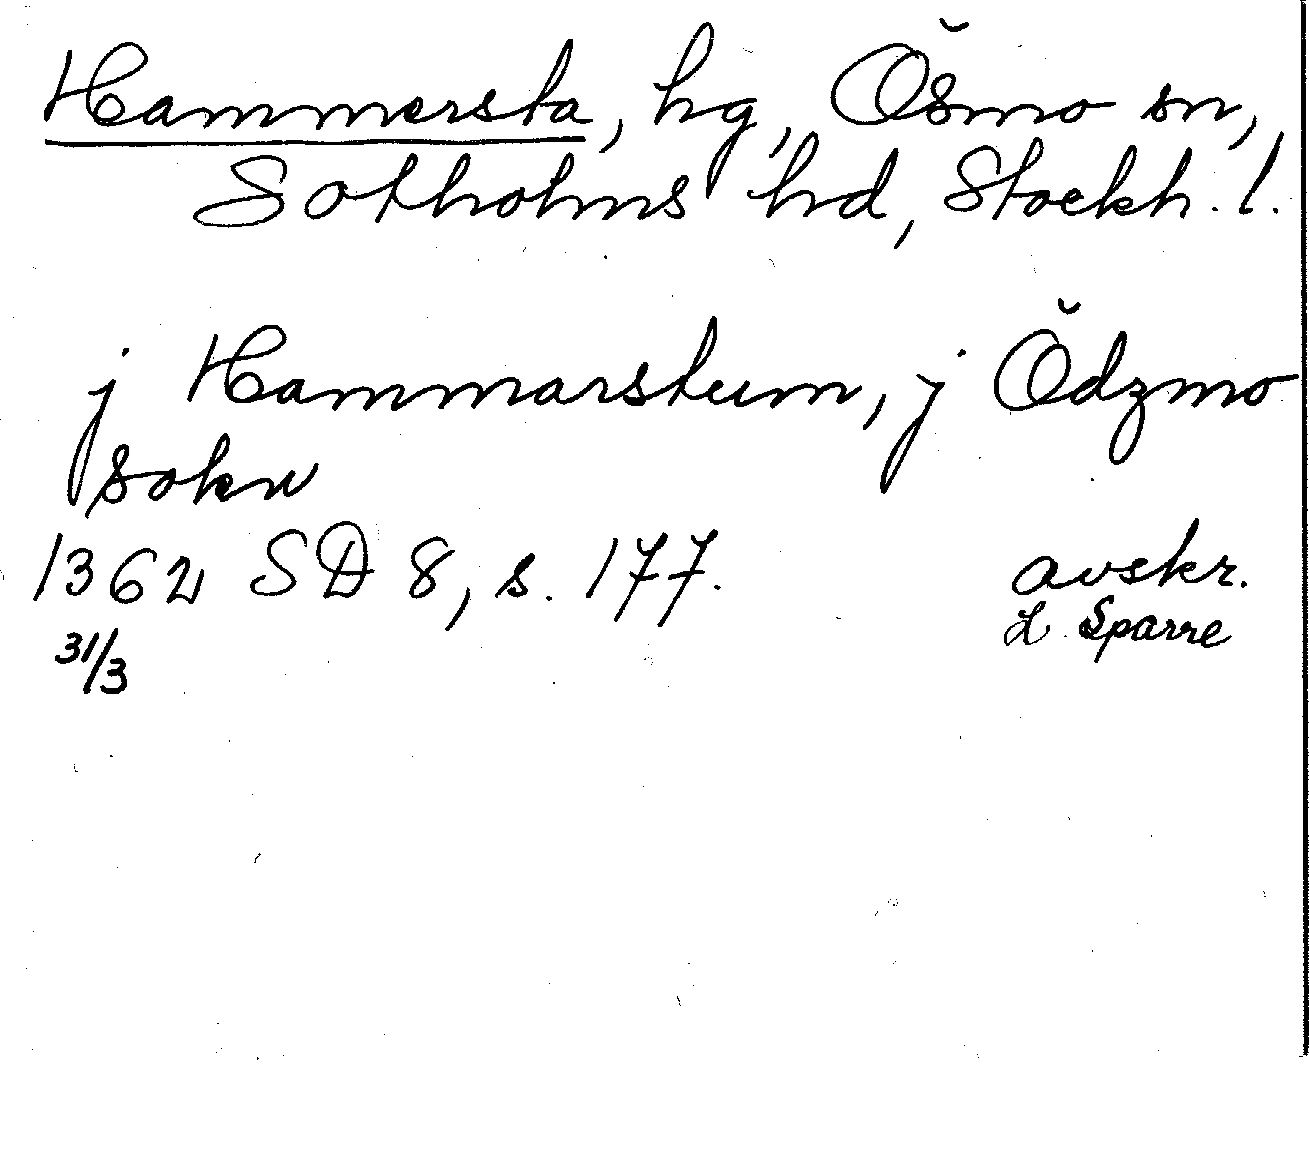 Hammersta, hg, Ösmo sn,
Sotholms hd, Stockh. l.
j Hammarstum, j Ödzmo
sokn
1362 SD 8, s. 177. avskr.
31/3 L Sparre